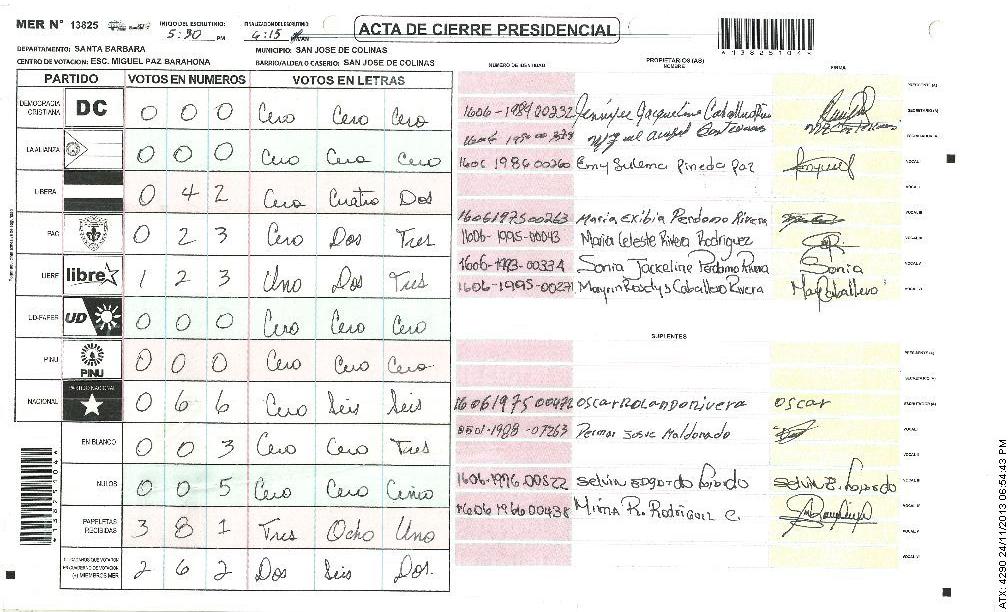 MER N° 13825
INICIO DEL ESCRUTINIO: 5:30 PM
FINALIZACION DEL ESCRUTINIO: 6:15
ACTA DE CIERRE PRESIDENCIAL
*13825104*
DEPARTAMENTO: SANTA BARBARA
MUNICIPIO: SAN JOSE DE COLINAS
CENTRO DE VOTACION: ESC. MIGUEL PAZ BARAHONA
BARRIO/ALDEA O CASERIO: SAN JOSE DE COLINAS
PARTIDO VOTOS EN NUMEROS VOTOS EN LETRAS
DEMOCRACIA CRISTIANA DC 0 0 0 Cero Cero Cero
LA ALIANZA 0 0 0 Cero Cero Cero
LIBERA 0 4 2 Cero Cuatro Dos
PAC 0 2 3 Cero Dos Tres
LIBRE libre 1 2 3 Uno Dos Tres
UD-FAPER UD 0 0 0 Cero Cero Cero
PINU PINU 0 0 0 Cero Cero Cero
NACIONAL PARTIDO NACIONAL 0 6 6 Cero Seis Seis
EN BLANCO 0 0 3 Cero Cero Tres
NULOS 0 0 5 Cero Cero Cinco
PAPELETAS RECIBIDAS 3 8 1 Tres Ocho Uno
CIUDADANOS QUE VOTARON EN CUADERNO DE VOTACION (+) MIEMBROS MER 2 6 2 Dos Seis Dos
NUMERO DE IDENTIDAD PROPIETARIOS (AS) NOMBRE FIRMA
PRESIDENTE (A)
1606-1989 00332 Jennifer Jaqueline Caballero SECRETARIO (A)
Miguel Angel
1606 1986 00260 Emy Sulema Pineda Paz VOCAL I
16061975 00263 Maria Exibia Perdomo Rivera VOCAL III
1606-1995-00043 Maria Celeste Rivera Rodriguez
1606-1993-00334 Sonia Jackeline Perdomo Rivera Sonia VOCAL V
1606-1995-00271 Mayrin Roselys Caballero Rivera May Caballero
SUPLENTES
PRESIDENTE (A)
SECRETARIO (A)
16061975 00472 Oscar Rolando Rivera oscar ESCRUTADOR (A)
0501-1988-07263 Josue Maldonado VOCAL I
VOCAL II
1606-1996-00822 Selvin Edgardo VOCAL III
1606 1966 00438 Mirna R. Rodriguez C. VOCAL IV
VOCAL V
VOCAL VI
*13825104*
ATX: 4290 24/11/2013 06:54:43 PM